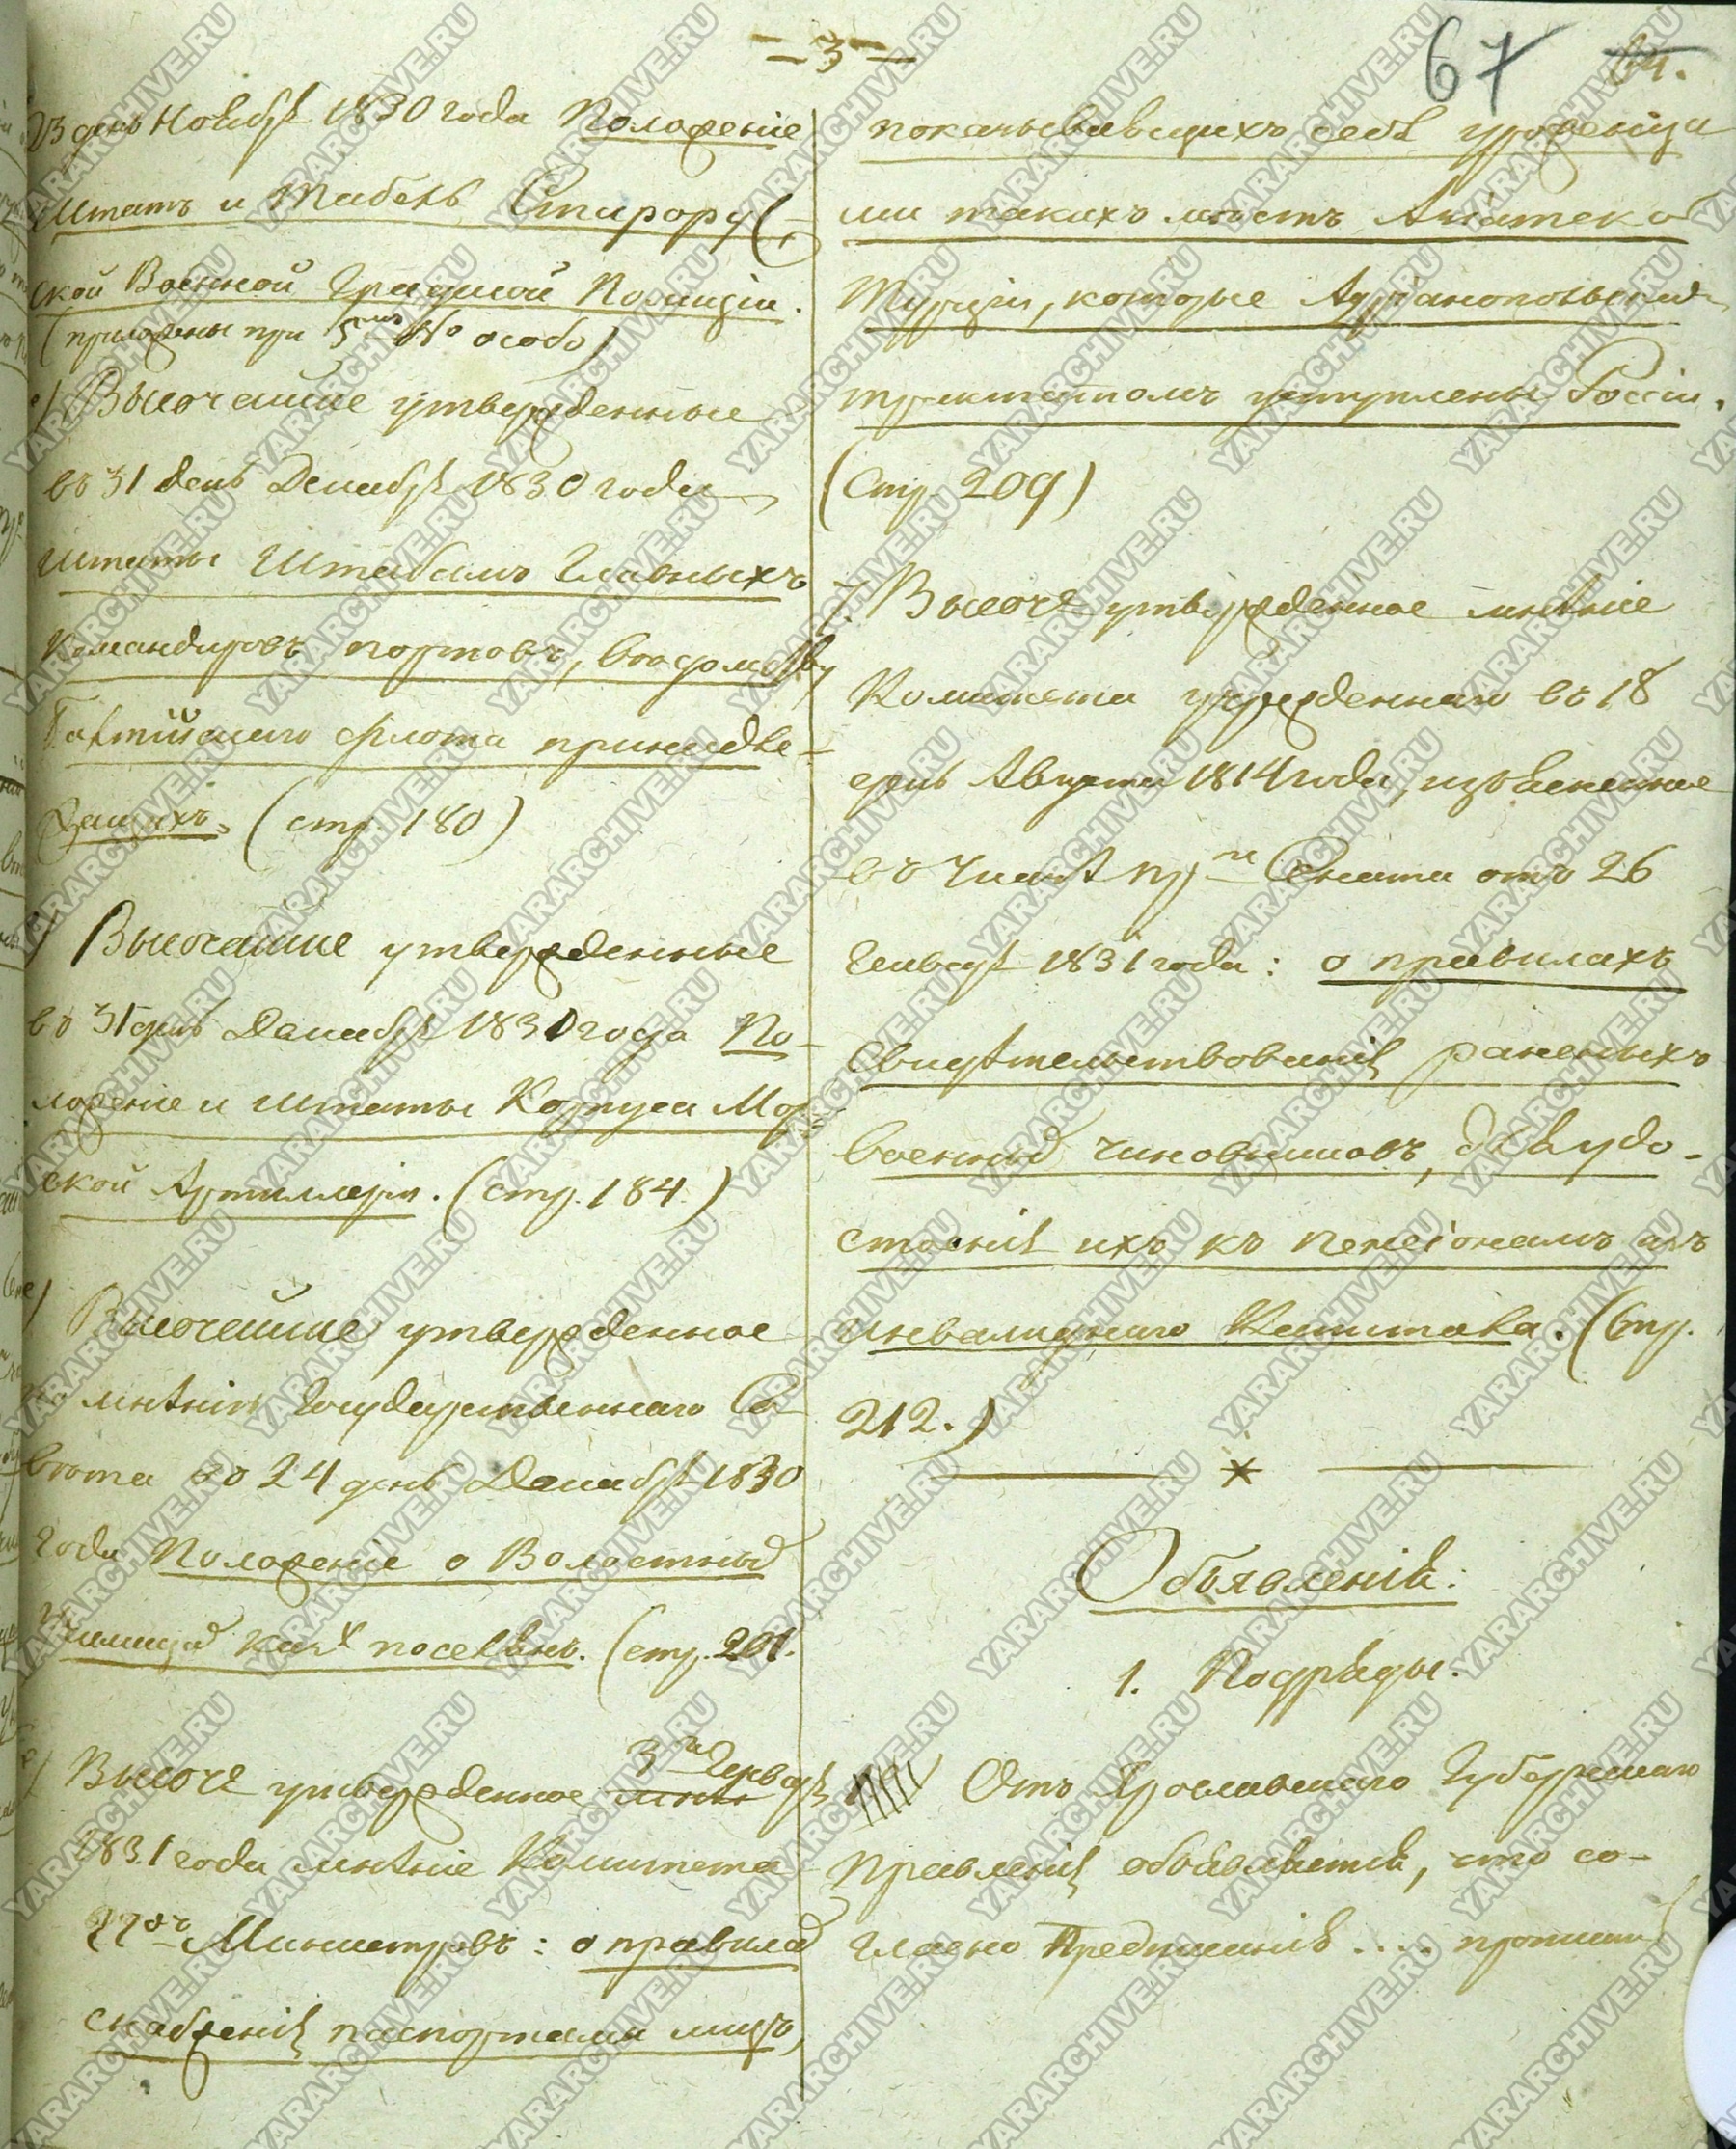 – 3 –
67
64.
23 день Ноября 1830 года Положеніе
Штатъ и Табель
ской Военной Градской Полиціи.
(приложены при 5мъ № особо)
Высочайше утвержденные
въ 31 день Декабря 1830 года
Штаты Штабамъ Главныхъ
Командировъ портовъ, вѣдомству
Балтійскаго флота принадле-
жащихъ. (стр. 180)
Высочайше утвержденные
въ 31 день Декабря 1830 года По-
ложеніе и Штаты Корпуса Мор-
ской Артиллеріи. (стр. 184.)
Высочайше утвержденное
по мнѣнію Государственнаго Со-
вѣта въ 24 день Декабря 1830
года Положеніе о Волостныхъ
поселянъ. (стр. 201.
Высоче утвержденное 3го Генваря
1831 года мнѣніе Комитета
Министровъ: о правилахъ
снабженія паспортами лицъ,
показывающихъ себя уроженца
ми такихъ мѣстъ Азіатской
Турціи, которые Адріанопольскимъ
трактатомъ уступлены Россіи.
(Стр. 209)
Высоче утвержденное мнѣніе
Комитета учрежденнаго въ 18
день Августа 1814 года, изъясненное
въ Указѣ Прго Сената отъ 26
Генваря 1831 года: о правилахъ
свидѣтельствованія раненыхъ
военныхъ чиновниковъ, для удо-
стоенія ихъ къ пенсіонамъ изъ
инвалиднаго Капитала. (Стр.
212.)
*
Объявленія:
1. Подряды.
Отъ Ярославскаго Губернскаго
Правленія объявляется, что со-
гласно Предписанія ....